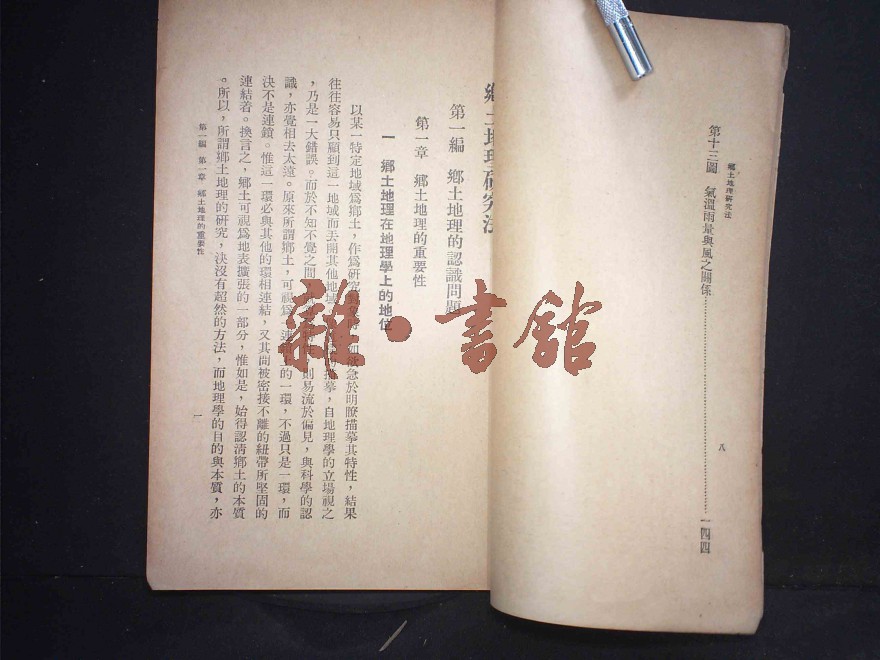 鄉土地理研究法
第十三圖 氣溫雨量與風之關係……一四四
八
鄉土地理研究法
第一編 鄉土地理的認識問題
第一章 鄉土地理的重要性
一 鄉土地理在地理學上的地位
以某一特定地域爲鄉土，作爲研究急於明瞭描摹其特性，結果
往往容易只顧到這一地域而去開其他地域描摹，自地理學的立場視之
，乃是一大錯誤。而於不知不覺之間則易流於偏見，與科學的認
識，亦覺相去太遠。原來所謂鄉土，可視爲連的一環，不過只是一環，而
決不是連鎖。惟這一環必與其他的環相連結，又其間被密接不離的紐帶所堅固的
連結着。換言之，鄉土可視爲地表擴張的一部分，惟如是，始得認清鄉土的本質
。所以，所謂鄉土地理的研究，決沒有超然的方法，而地理學的目的與本質，亦
第一編 第一章 鄉土地理的重要性
一
雜·書館